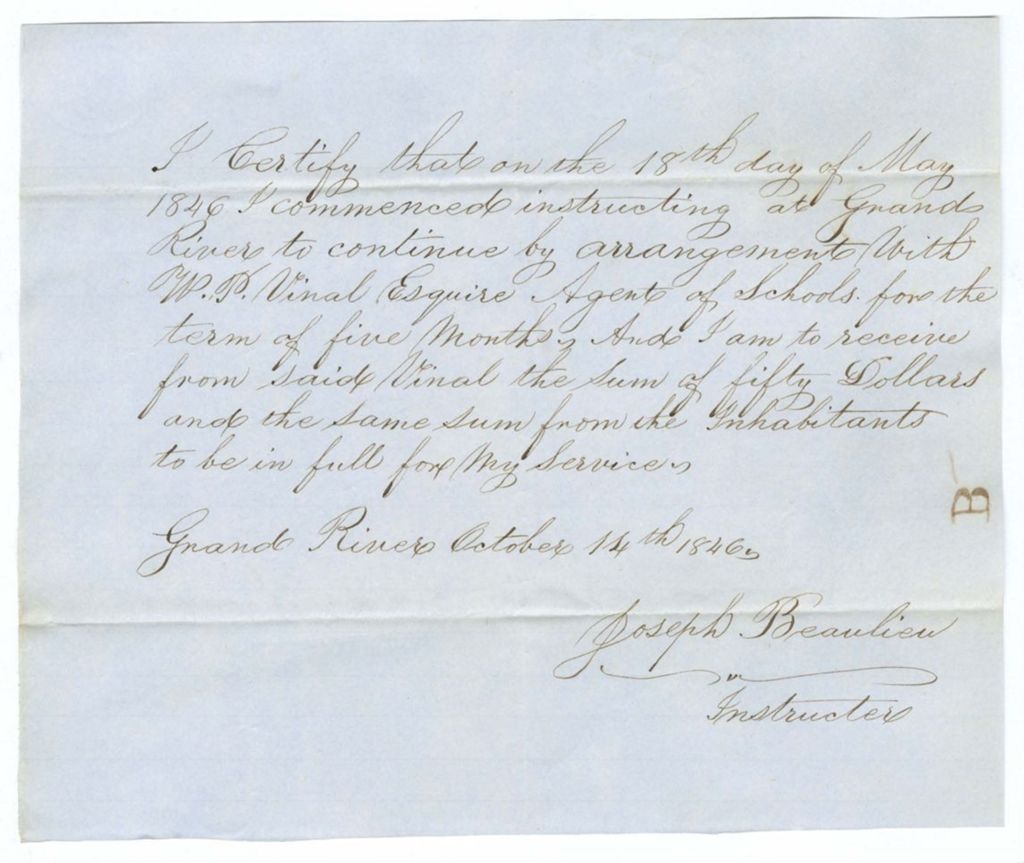 I Certify that on the 18th day of May
1846 I commenced instructing at Grand
River to continue by arrangement With
W. P. Vinal Esquire Agent of Schools. for the
term of five Months, And I am to receive
from said Vinal the sum of fifty Dollars
and the same sum from the Inhabitants
to be in full for My Service,
B
Grand River October 14th 1846,
Joseph Beaulieu
Instructer